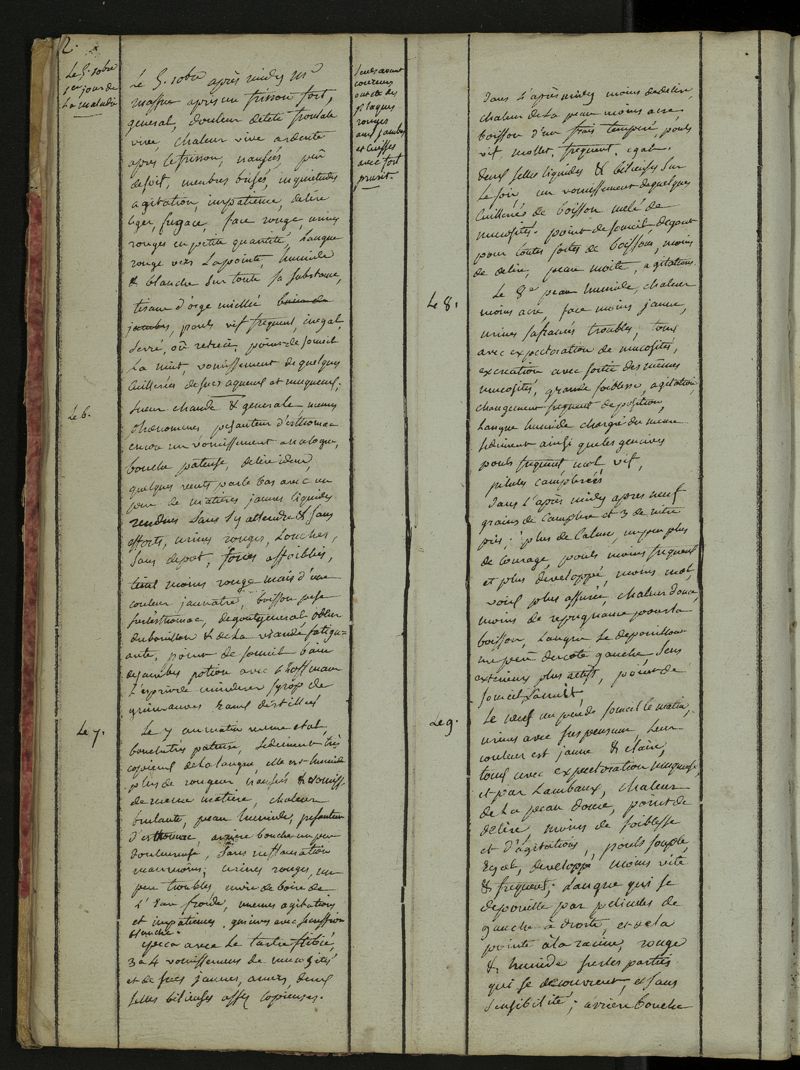 2.
Le 5. 8obre
1er jour de
La maladie
Le 5. 8obre après midy mr
masson après un frisson fort,
general, douleur detete frontale
vive, chaleur vive ardente
après le frison, nausées, peu
desoif, membres brisés, inquietudes
agitation, impatience, delire
leger, fugace, face rouge, urines
rouges en petite quantité, Langue
rouge vers Lapointe, humide
& blanche sur toute sa substance,
tisane d'orge miellée bain de
jambes, pouls vif frequent, inegal,
serré, où retreci, point de someil
La nuit, vomissement de quelques
Cuillerées desucs aqueux et muqueux,
sueur chaude & generale memes
Le 6.
Phenomenes pesanteur d'esthomac
encor un vomissement analogue,
bouche pateuse, delire idem,
quelques vents par le bas avec un
peu de matières jaunes liquides
rendues sans s'y attendre & sans
efforts, urines rouges, Louches,
sans depot, forces affoiblies,
teint moins rouge mais d'une
couleur jaunatre, boisson pese
surlesthomac, degout general, odeur
du bouillon & de La viande fatigu-
ante, point de someil bain
dejambes potion avec l'hoffman
L'esprit de minderer syrop de
guimauves Eaux distillées
Le 7.
Le 7 au matin meme etat
bouche très pateuse, sediment très
copieux de La langue, elle est humide
plus de rougeur, nausées & vomiss.
de meme matiere, chaleur
brulante, peau humide, pesanteur
d'esthomac, arriere bouche un peu
douloureuse, sans inflamation
neanmoins; urines rouges, un
peu troubles, envie de boire de
L'Eau froide, memes agitations
et impatiences,
blanche.
ypeca avec Le tartre stibié,
3 a 4 vomissemens de mucosités
et de sucs jaunes, amers, deux
selles bilieuses assez copieuses.
plaques
rouges
aux jambes
et cuisses
avec fort
prurit.
Dans L'après midy moins de delire,
chaleur de La peau moins acre,
boisson d'eau frais temperée, pouls
vif, mollet, frequent, egal.
deux selles liquides & bilieuses sur
Le soir, un vomissement de quelques
Cuillerées de boisson melé de
mucosités. point de someil, degout
pour toutes sortes de boissons, moins
de delire, peau moite, agitations.
Le 8.
Le 8e peau humide, chaleur
moins acre, face moins jaune,
urines safranées troubles, toux
avec expectoration de mucosités,
excreation avec sortie des mêmes
mucosités, grande foiblesse, agitation,
changement frequent de position,
Langue humide chargée du meme
sediment ainsi que les gencives
pouls frequent mol vif,
pilules camphrées
Dans L'après midy apres neuf
grains de camphre et 3 de nitre
pris; plus de calme, un peu plus
de courage, pouls moins frequent
et plus developpé, moins mol,
voix plus assurée, chaleur douce
moins de repugnance pour la
boisson, Langue se depouillant
un peu du coté gauche, sens
exterieurs plus actifs, point de
someil La nuit,
Le 9.
Le neuf un peu de someil le matin,
urines avec suspensum, Leur
couleur est jaune & claire,
toux avec expectoration muqueuse,
et par Lambeaux, chaleur
de La peau douce, point de
delire, moins de foiblesse
et d'agitations, pouls souple,
Egal, developpé moins vite
& frequent, Langue qui se
depouille par pelicules de
gauche à droite, et de la
pointe à la racine, rouge
& humide sur les parties
qui se decouvrent, et sans
sensibilité; arriere bouche